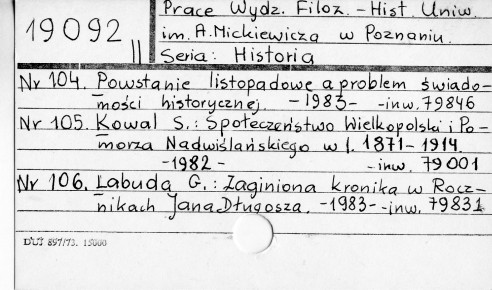 Prace Wydz. Filoz. - Hist. Uniw.
19092 II im. A. Mickiewicza w Poznaniu.
Seria: Historia
Nr 104. Powstanie listopadowe a problem świado-
mości historycznej. -1983- -inw. 79846
Nr 105. Kowal S.: Społeczeństwo Wielkopolski i Po-
morza Nadwiślańskiego w l. 1871-1914.
-1982- -inw. 79001
Nr 106. Labuda G.: Zaginiona kronika w Rocz-
nikach Jana Długosza. -1983- -inw. 79831
DUJ 897/73. 15000